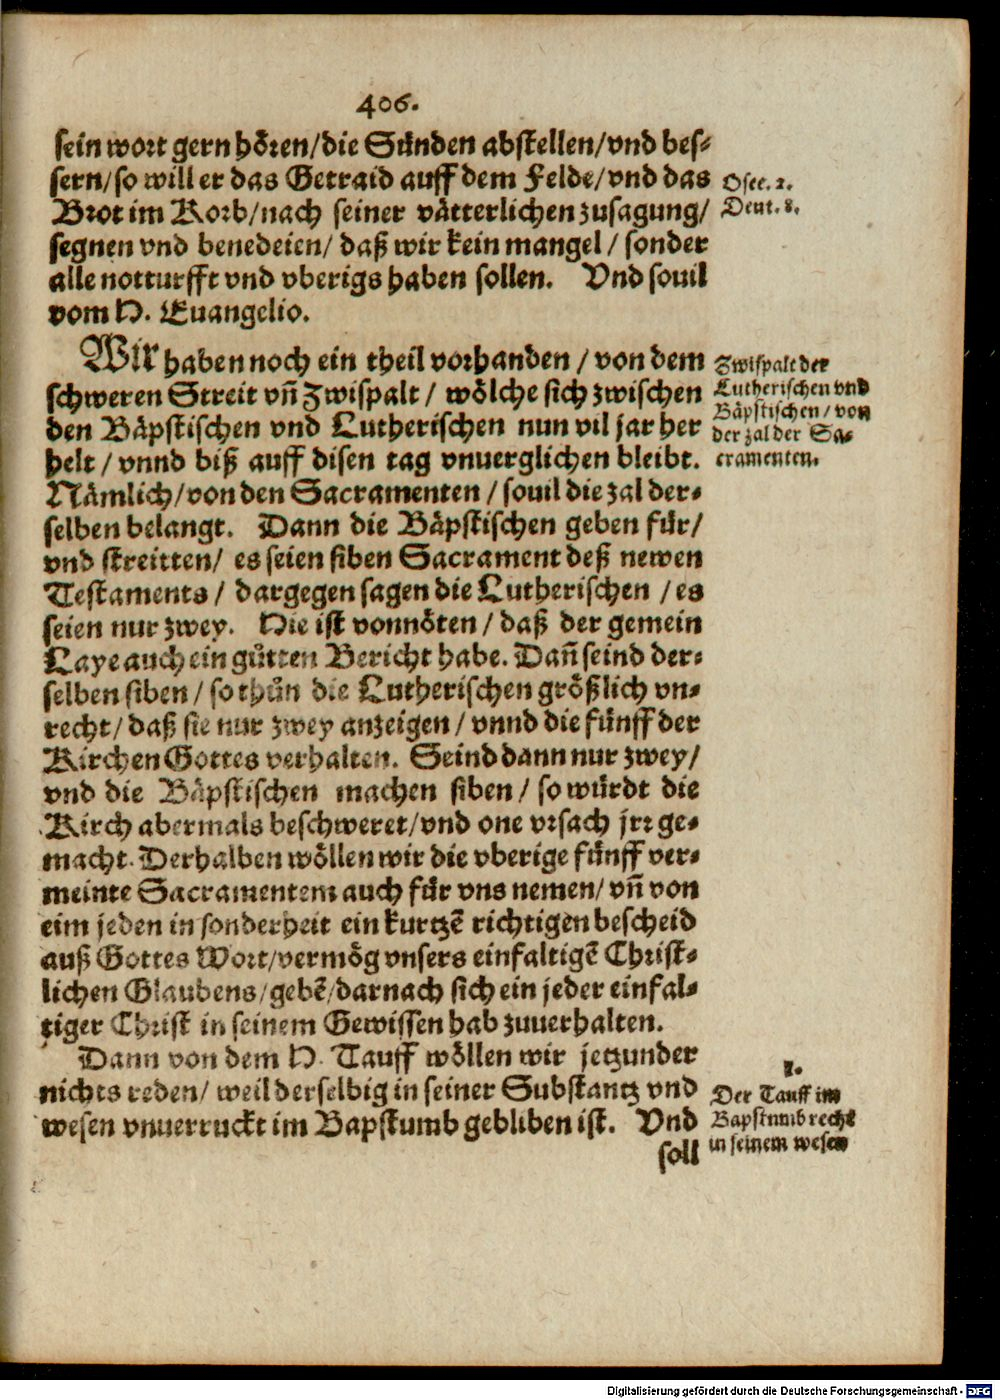 406.
sein wort gern hören/die Sünden abstellen/vnd bes-
sern/so will er das Getraid auff dem Felde/vnd das
Brot im Korb/nach seiner vätterlichen zusagung/
segnen vnd benedeien/ daß wir kein mangel / sonder
alle notturfft vnd vberigs haben sollen. Vnd souil
vom H. Euangelio.
Osee. 2.
Deut. 8.
WIr haben noch ein theil vorhanden / von dem
schweren Streit vn̄ Zwispalt / wölche sich zwischen
den Bäpstischen vnd Lutherischen nun vil jar her
helt / vnnd biß auff disen tag vnuerglichen bleibt.
Nämlich/von den Sacramenten / souil die zal der-
selben belangt. Dann die Bäpstischen geben für/
vnd streitten/ es seien siben Sacrament deß newen
Testaments / dargegen sagen die Lutherischen / es
seien nur zwey. Hie ist vonnöten / daß der gemein
Laye auch ein gůtten Bericht habe. Dan̄ seind der-
selben siben / so thůn die Lutherischen größlich vn-
recht/ daß sie nur zwey anzeigen / vnnd die fünff der
Kirchen Gottes verhalten. Seind dann nur zwey/
vnd die Bäpstischen machen siben / so würdt die
Kirch abermals beschweret/vnd one vrsach jrr ge-
macht. Derhalben wöllen wir die vberige fünff ver-
meinte Sacramenten auch für vns nemen/ vn̄ von
eim jeden in sonderheit ein kurtzē richtigen bescheid
auß Gottes Wort/vermög vnsers einfaltigē Christ-
lichen Glaubens/gebē/darnach sich ein jeder einfal-
tiger Christ in seinem Gewissen hab zuuerhalten.
Zwispalt der
Lutherischen vnd
Bäpstischen / von
der zal der Sa-
cramenten.
Dann von dem H. Tauff wöllen wir jetzunder
nichts reden/ weil derselbig in seiner Substantz vnd
wesen vnuerruckt im Bapstumb gebliben ist. Vnd
soll
1.
Der Tauff im
Bapstumb recht
in seinem wesen
Digitalisierung gefördert durch die Deutsche Forschungsgemeinschaft - DFG